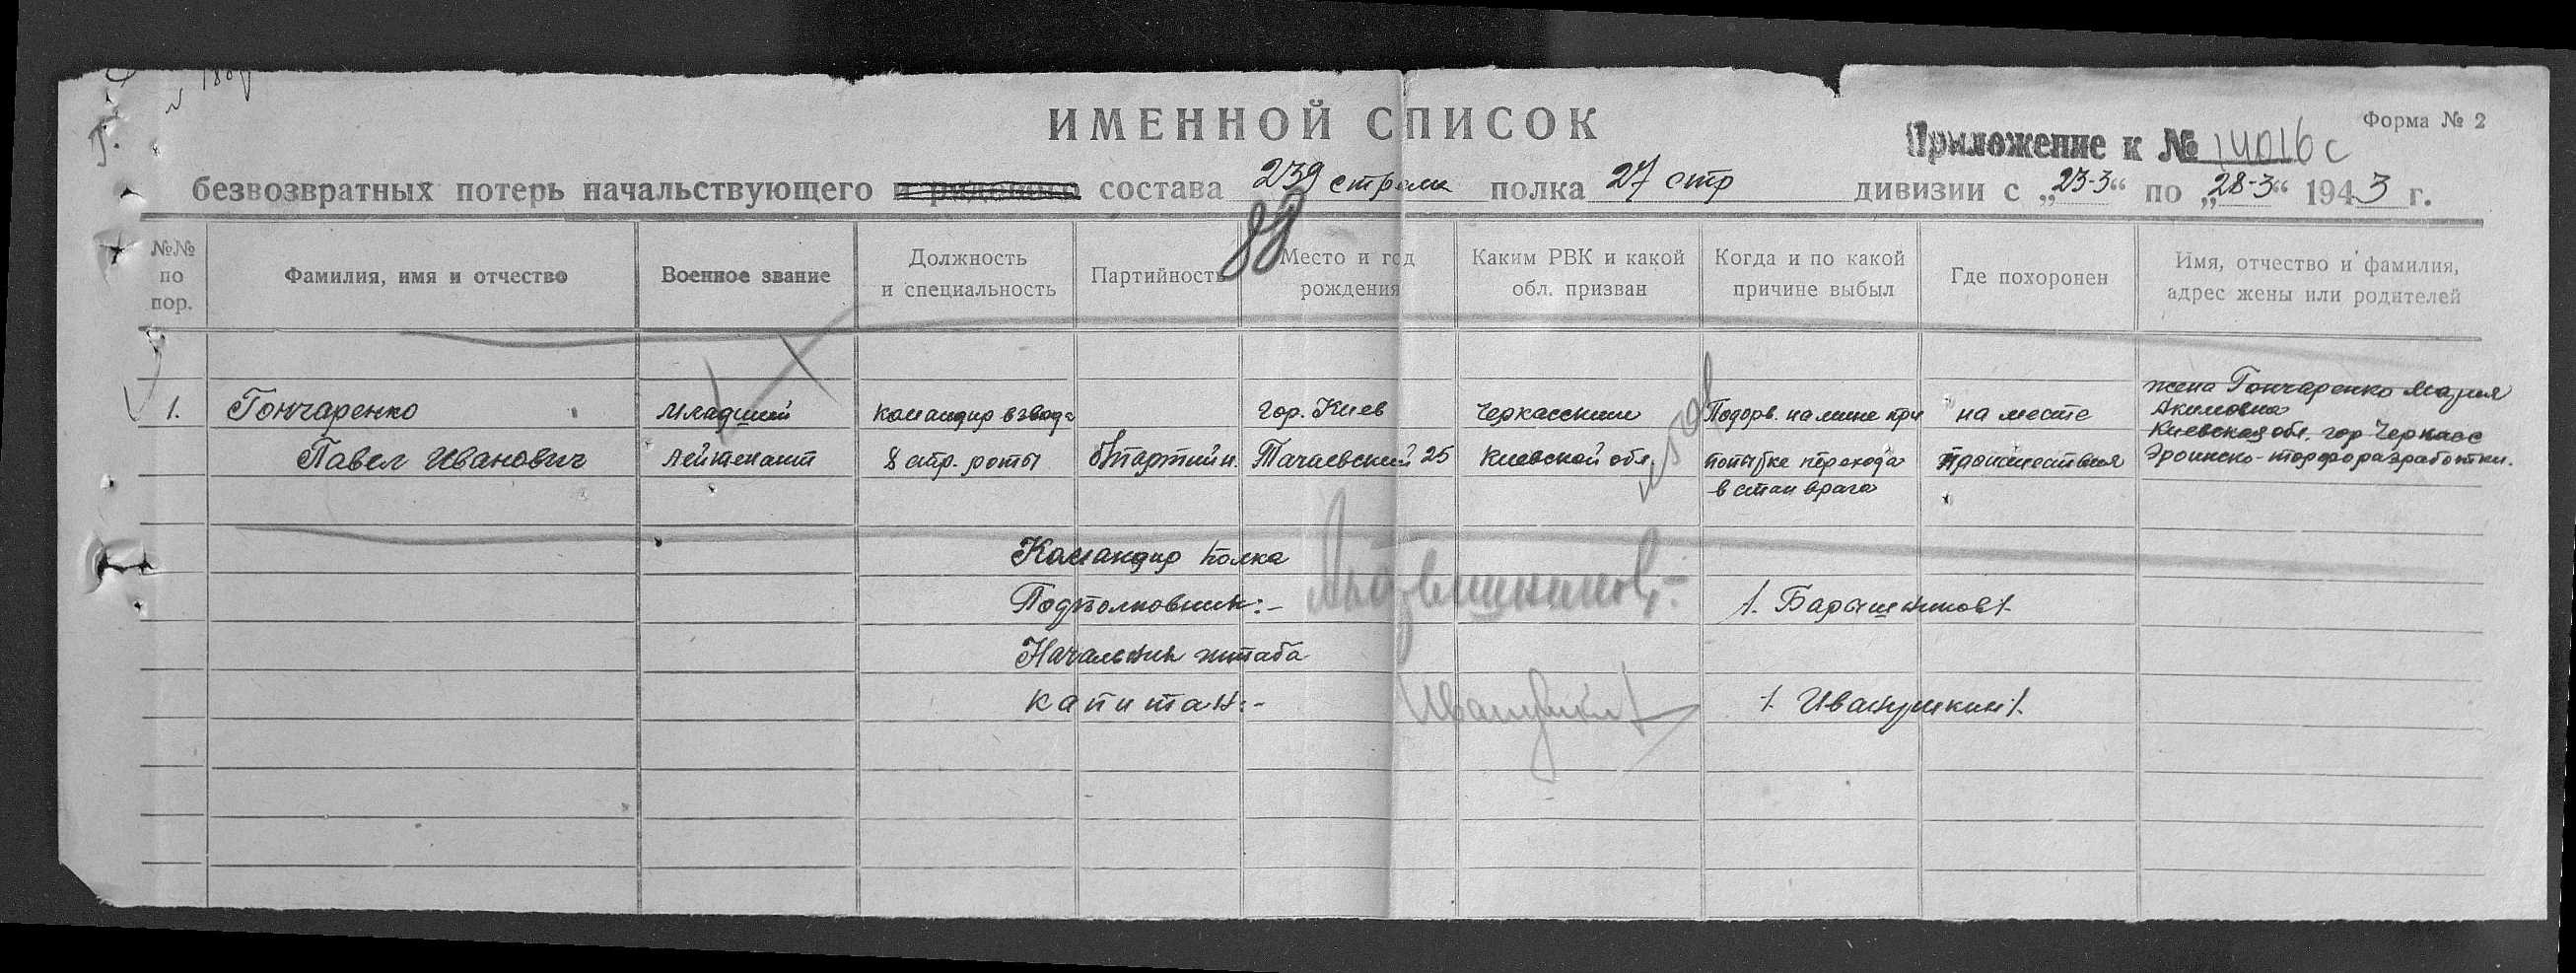 ИМЕННОЙ СПИСОК
Форма № 2
Приложение к № 14016с
безвозвратных потерь начальствующего состава 239 стрелк полка 27 стр дивизии с „23-3“ по „28-3“ 1943 г.
88
№№ по пор.
Фамилия, имя и отчество
Военное звание
Должность и специальность
Партийность
Место и год рождения
Каким РВК и какой обл. призван
Когда и по какой причине выбыл
Где похоронен
Имя, отчество и фамилия, адрес жены или родителей
жена Гончаренко Мария
1. Гончаренко младший командир взвода гор. Киев Черкасским Подорв. на мине при на месте Акимовна
Киевская обл. гор Черкасс
Павел Иванович лейтенант 8 стр. роты б/партийн. 25 Киевской обл. попытке перехода происшествия торфоразработки.
в стан врага
Командир полка
Подполковник:- /. Барышников/.
Начальник штаба
капитан:- Иванушкин /. Иванушкин/.